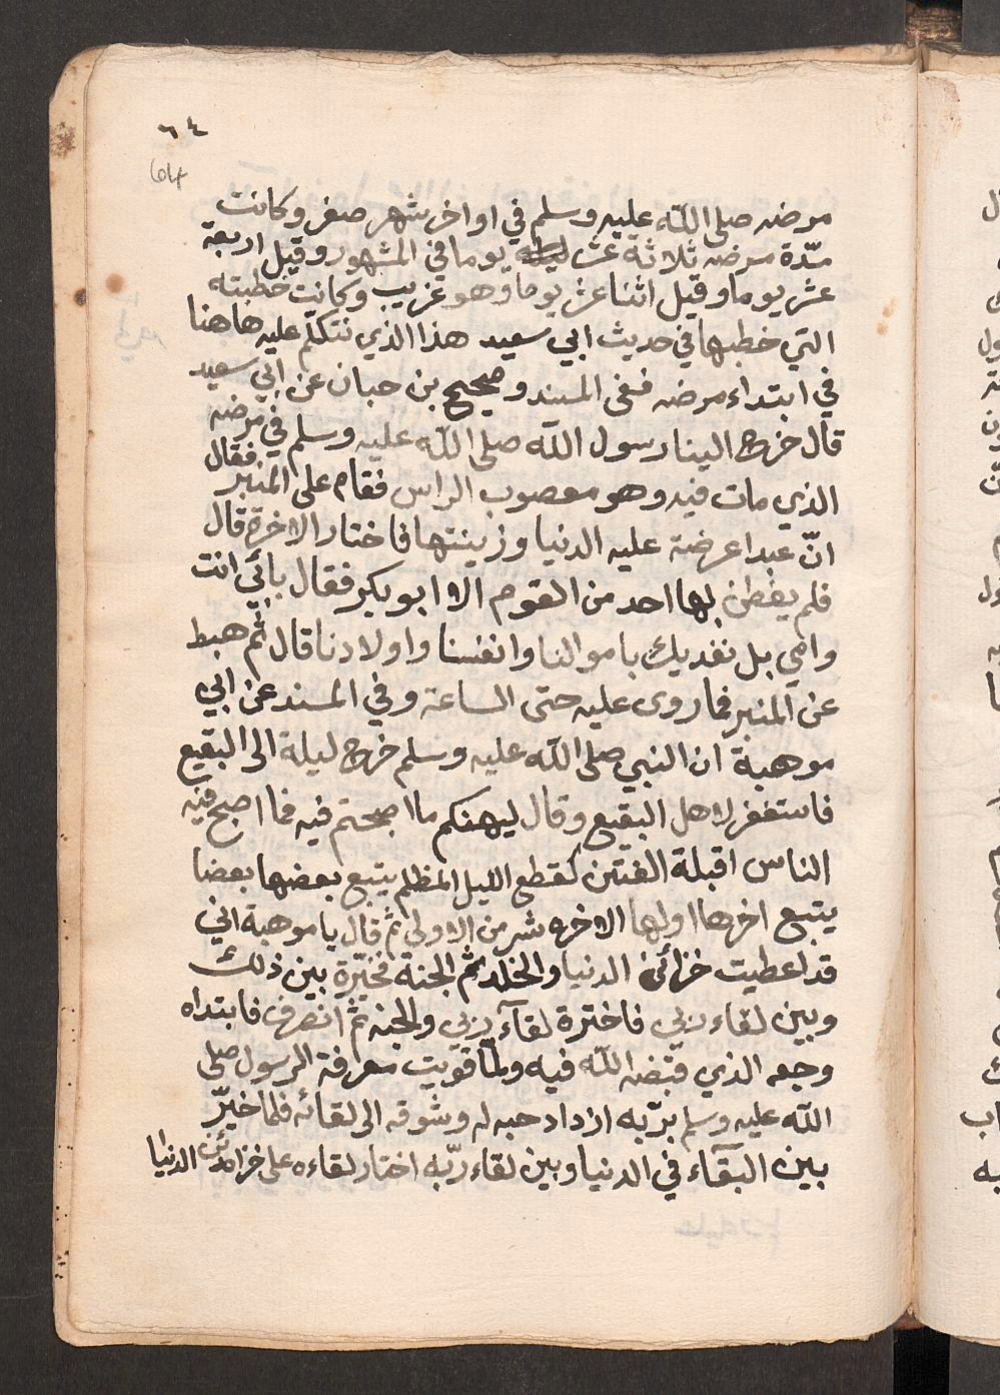 ٦٤
64
مرضه صلى الله عليه وسلم في اواخر شهر صفر وكانت
مدّة مرضه ثلاثة عشر يوما في المشهور وقيل اربعة
عشر يوما وقيل اثنا عشر يوما وهو غريب وكانت خطبته
التي خطبها في حديث ابي سعيد هذا الذي نتكلّم عليه هاهنا
في ابتداء مرضه ففى المسند وصحيح بن حبان عن ابي سعيد
قال خرج الينا رسول الله صلى الله عليه وسلم في مرضه
الذي مات فيه وهو معصوب الراس فقام على المنبر فقال
انّ عبدا عرضة عليه الدنيا وزينتها فاختار الاخرة قال
فلم يفطن لها احد من القوم الا ابو بكر فقال بأبي انت
وامي بل نفديك باموالنا وانفسنا واولادنا قال ثم هبط
عن المنبر فما روى عليه حتى الساعة وفي المسند عن ابي
موهبة ان النبي صلى الله عليه وسلم خرج ليلة الى البقيع
فاستغفر لاهل البقيع وقال ليهنكم ما اصبحتم فيه فما اصبح فيه
الناس اقبلة الفتن كقطع الليل المظلم يتبع بعضها بعضا
يتبع اخرها اولها الاخره شر من الاولى ثم قال يا موهبة اني
قد اعطيت خزائن الدنيا والخلد ثم الجنة فخيّرة بين ذلك
وبين لقاء ربي فاخترة لقآء ربي والجنه ثم انصرف فابتداه
وجعه الذي قبضه الله فيه ولمّا قويت معرفة الرسول صلى
الله عليه وسلم بربّه ازداد حبه له وشوقه الى لقائه فلما خيّر
بين البقآء في الدنيا وبين لقاء ربّه اختار لقاءه على خزائن الدنيا